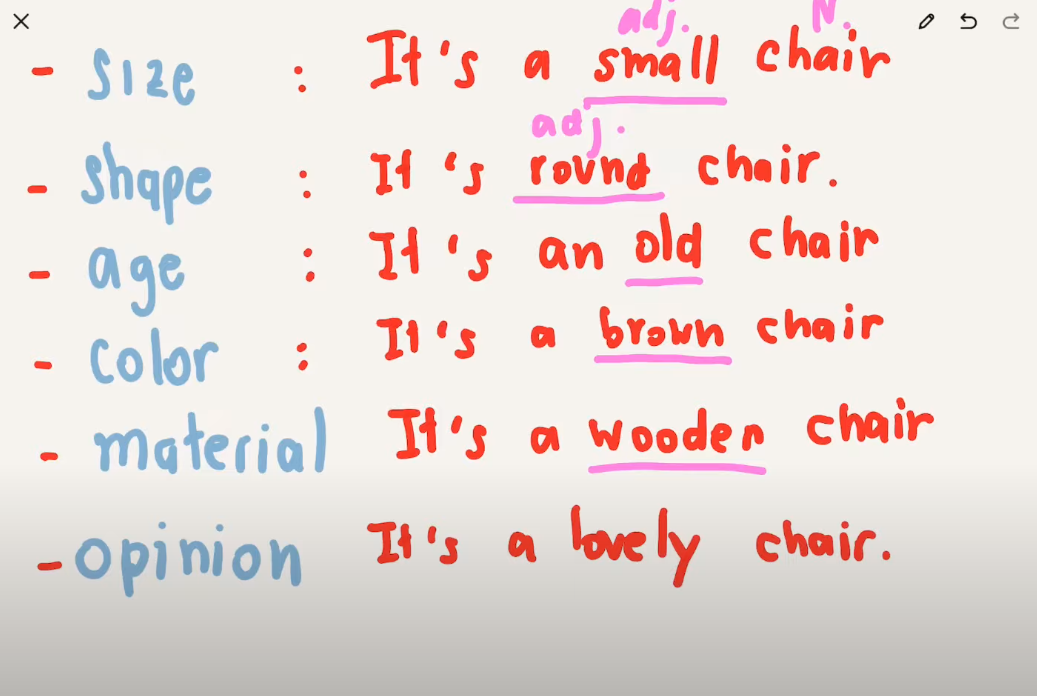 adj. N.
- size : It's a small chair
adj.
- shape : It's round chair.
- age : It's an old chair
- color : It's a brown chair
- material It's a wooden chair
- opinion It's a lovely chair.